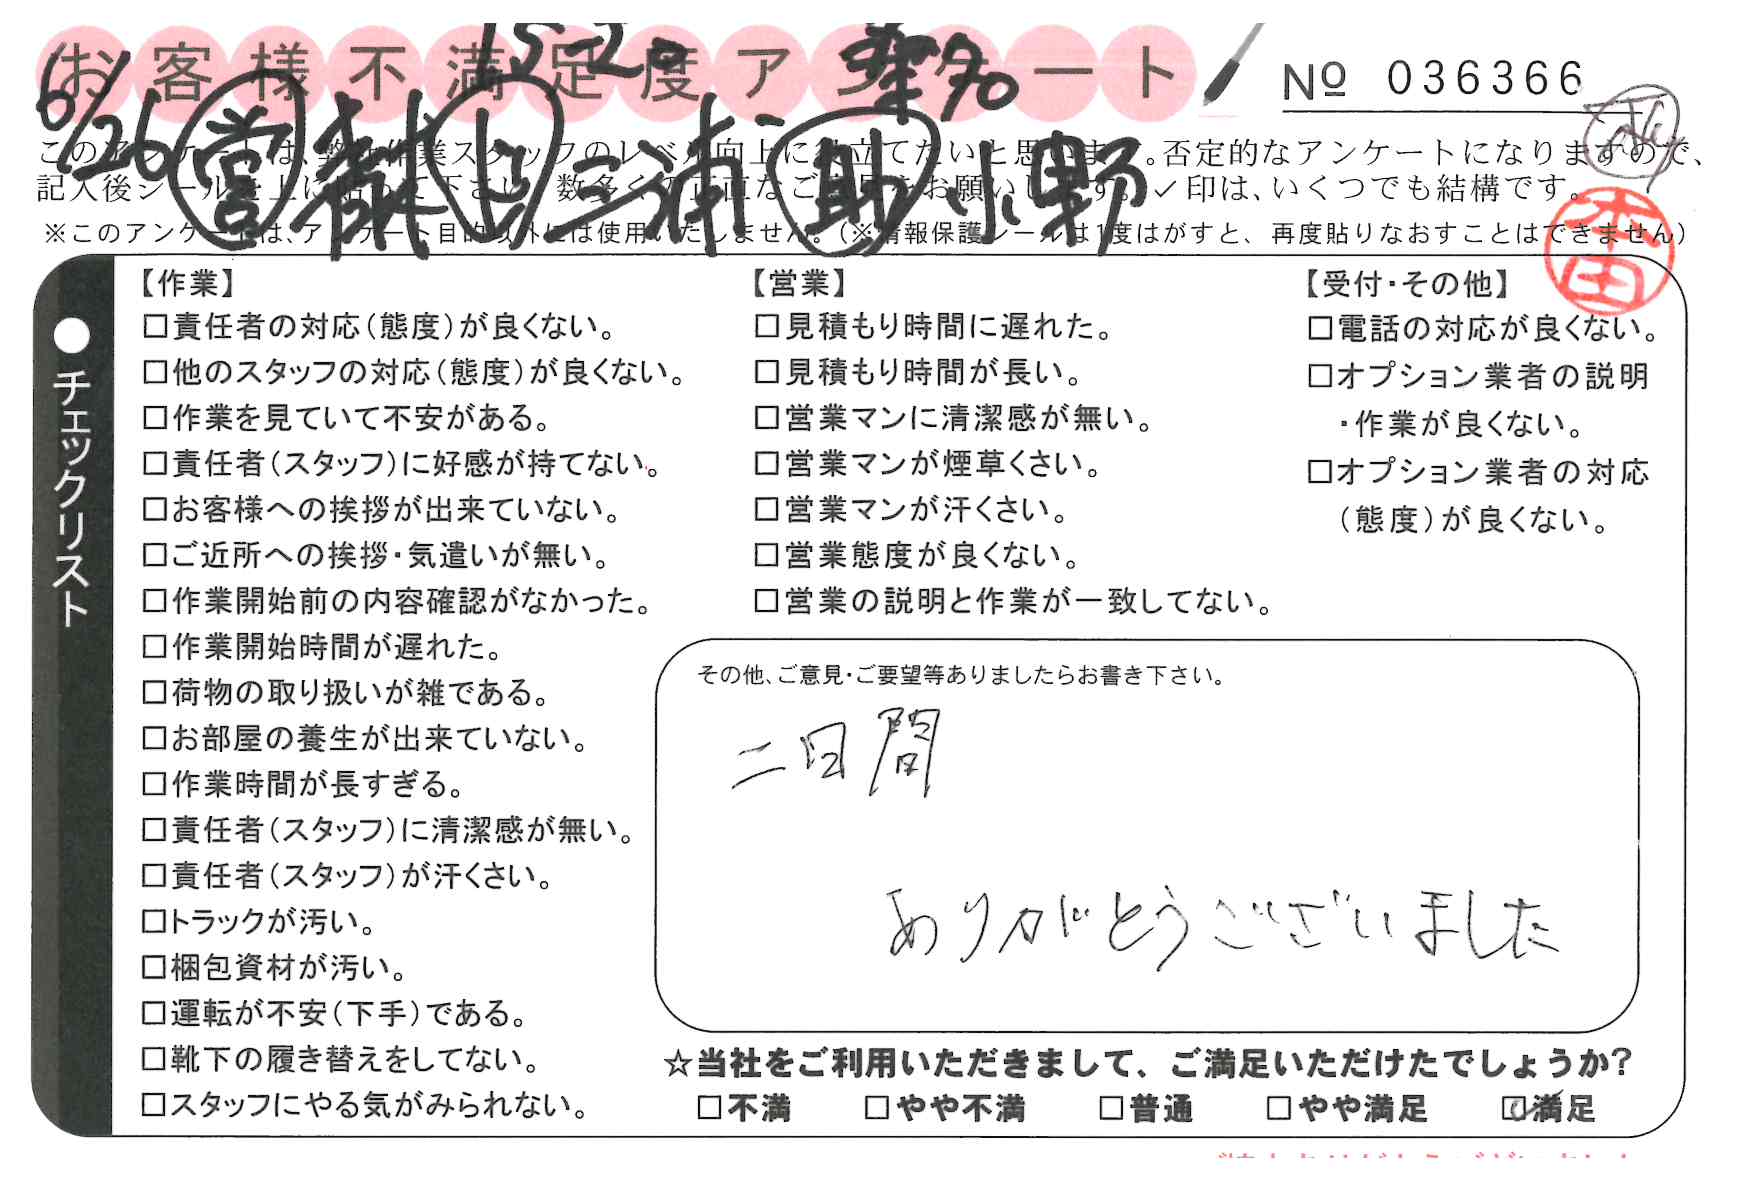 お客様不満足度アンケート
№ 036366
6/26 営 上 三浦 助 小野
このアンケートは、弊社作業スタッフのレベル向上に役立てたいと思います。否定的なアンケートになりますので、
記入後シールを上に貼って下さい。数多くの正直なご意見をお願いします。✓印は、いくつでも結構です。
※このアンケートは、アンケート目的以外には使用いたしません。(※情報保護シールは1度はがすと、再度貼りなおすことはできません)
本田
●チェックリスト
【作業】
□責任者の対応(態度)が良くない。
□他のスタッフの対応(態度)が良くない。
□作業を見ていて不安がある。
□責任者(スタッフ)に好感が持てない。
□お客様への挨拶が出来ていない。
□ご近所への挨拶・気遣いが無い。
□作業開始前の内容確認がなかった。
□作業開始時間が遅れた。
□荷物の取り扱いが雑である。
□お部屋の養生が出来ていない。
□作業時間が長すぎる。
□責任者(スタッフ)に清潔感が無い。
□責任者(スタッフ)が汗くさい。
□トラックが汚い。
□梱包資材が汚い。
□運転が不安(下手)である。
□靴下の履き替えをしてない。
□スタッフにやる気がみられない。
【営業】
□見積もり時間に遅れた。
□見積もり時間が長い。
□営業マンに清潔感が無い。
□営業マンが煙草くさい。
□営業マンが汗くさい。
□営業態度が良くない。
□営業の説明と作業が一致してない。
【受付・その他】
□電話の対応が良くない。
□オプション業者の説明
・作業が良くない。
□オプション業者の対応
(態度)が良くない。
その他、ご意見・ご要望等ありましたらお書き下さい。
二日間
ありがとうございました
☆当社をご利用いただきまして、ご満足いただけたでしょうか?
□不満 □やや不満 □普通 □やや満足 ☑満足